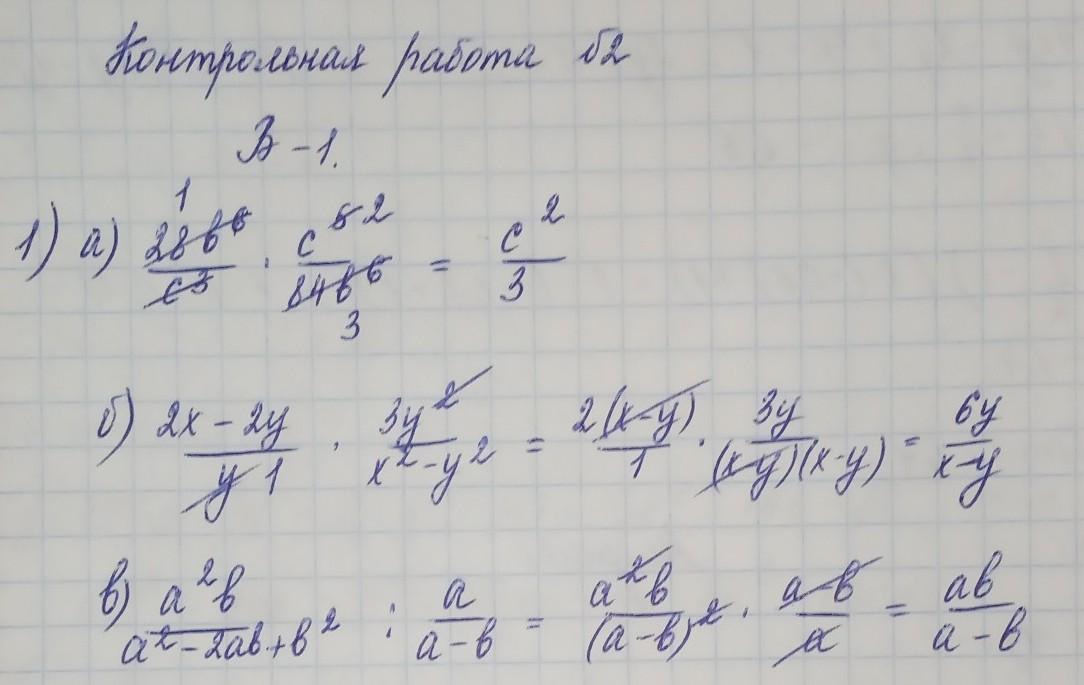 Контрольная работа №2
В-1.
1) а) 28b⁶/c³ · c⁵/84b⁶ = c²/3
б) 2x-2y/y · 3y²/x²-y² = 2(x-y)/1 · 3y/(x-y)(x-y) = 6y/x-y
в) a²b/a²-2ab+b² : a/a-b = a²b/(a-b)² · a-b/a = ab/a-b